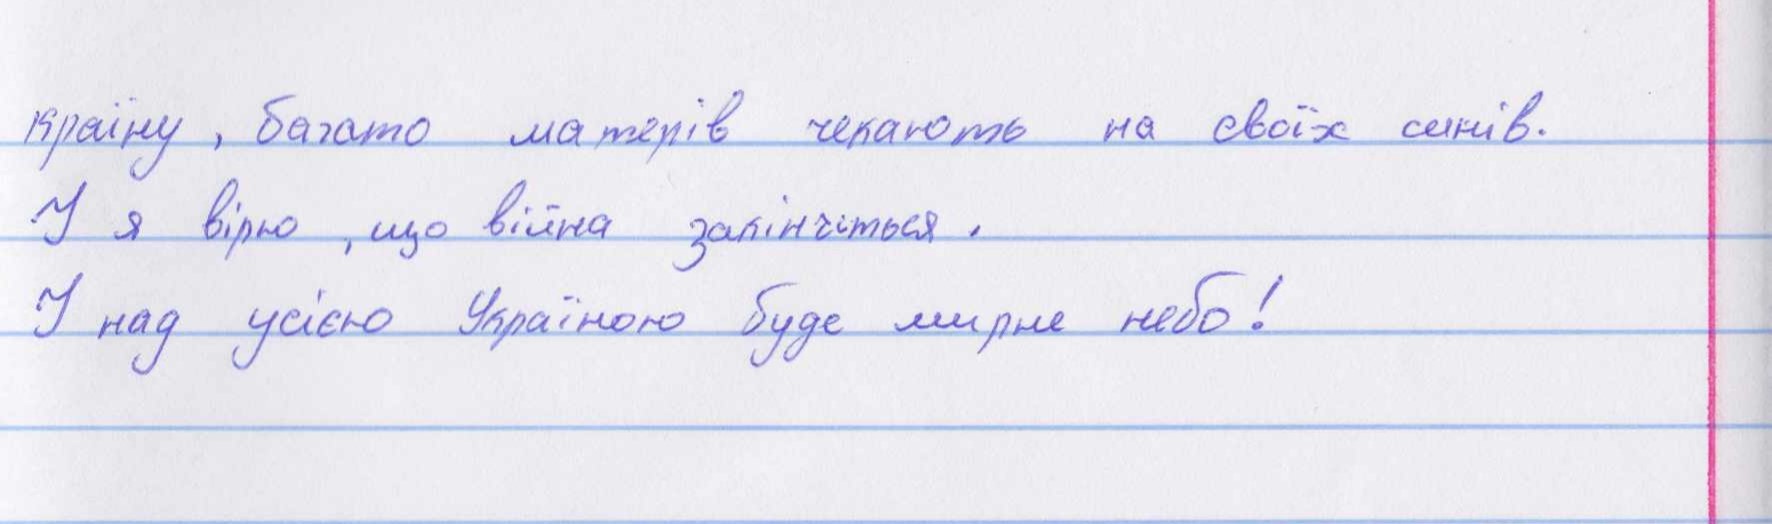 країну, багато матерів чекають на своїх синів.
І я вірю, що війна закінчиться.
І над усією Україною буде мирне небо!